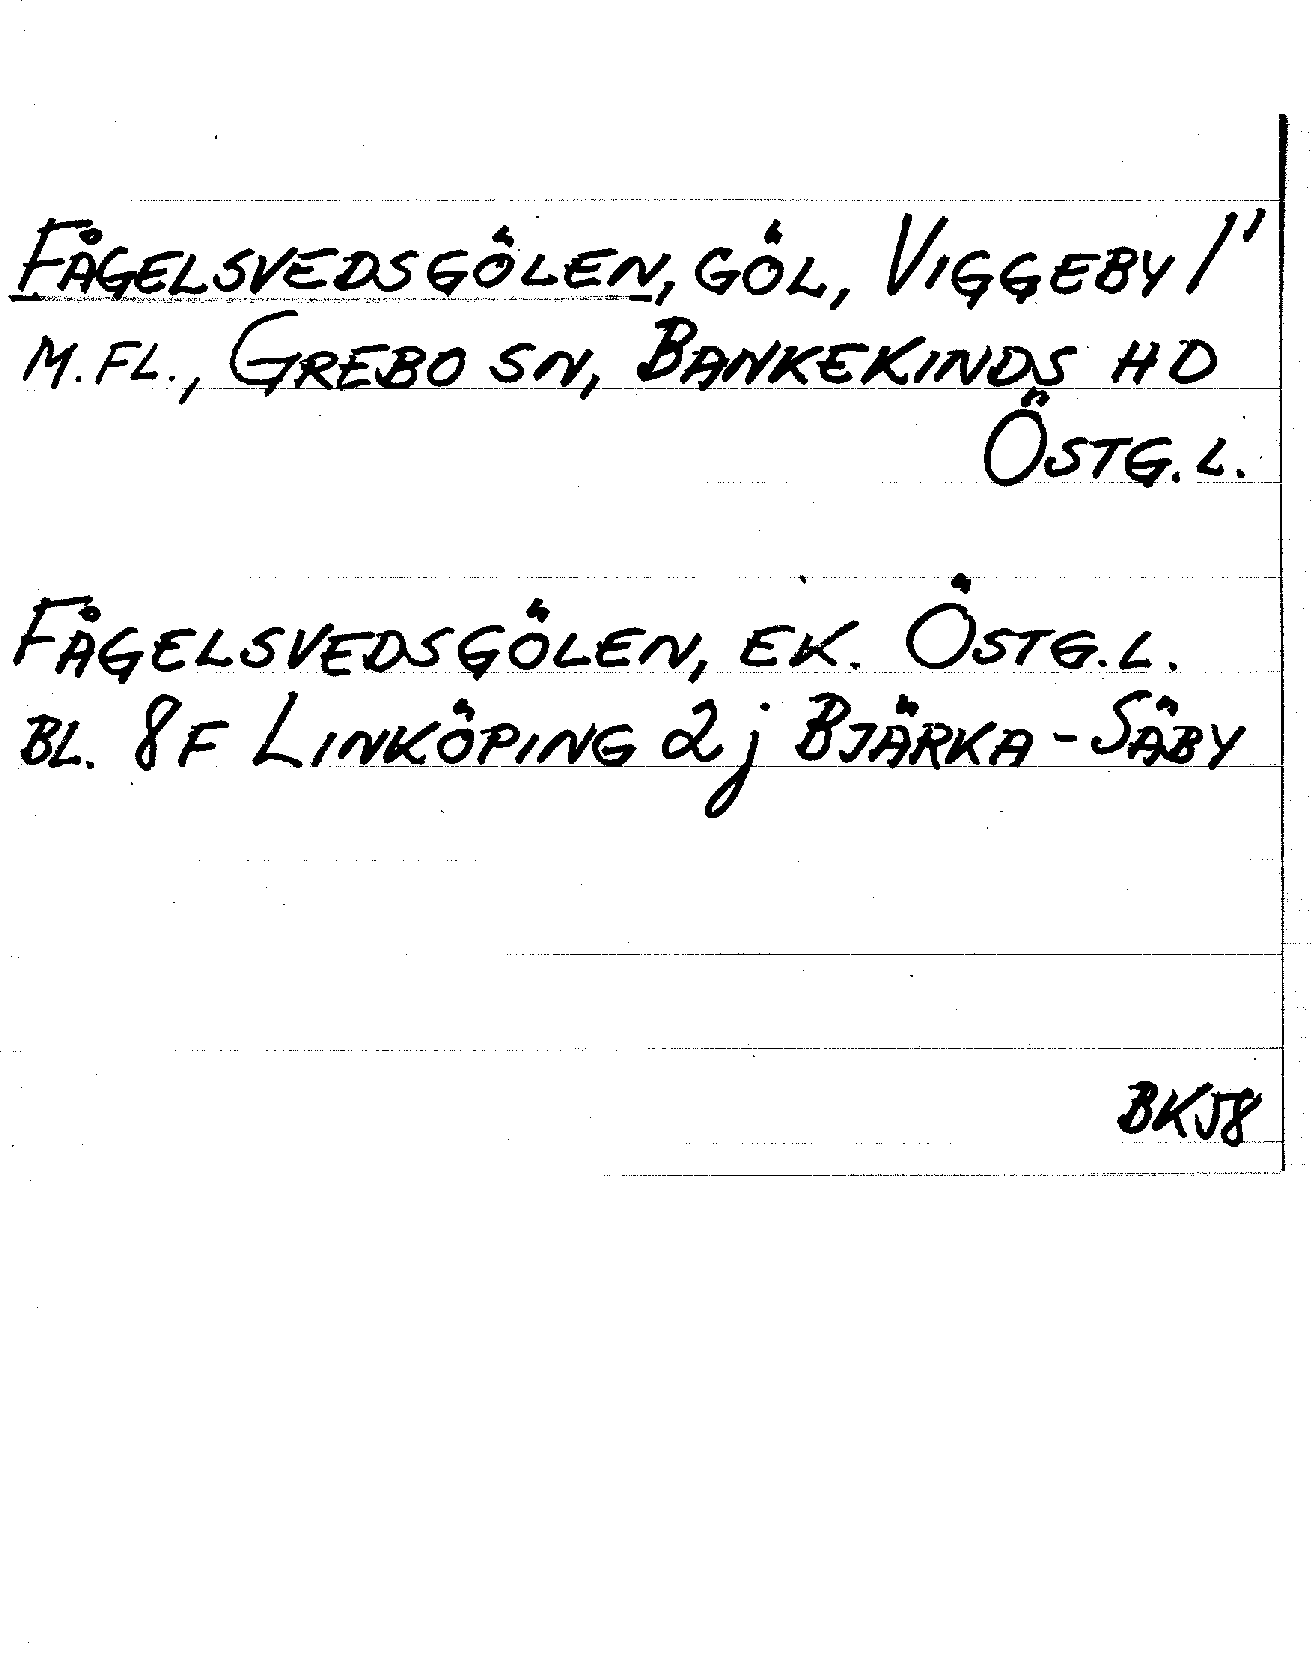 FÅGELSVEDSGÖLEN, GÖL, VIGGEBY 1'
M.FL., GREBO SN, BANKEKINDS HD
ÖSTG. L.
FÅGELSVEDSGÖLEN, EK. ÖSTG. L.
BL. 8F LINKÖPING 2j BJÄRKA-SÄBY
BKJ8